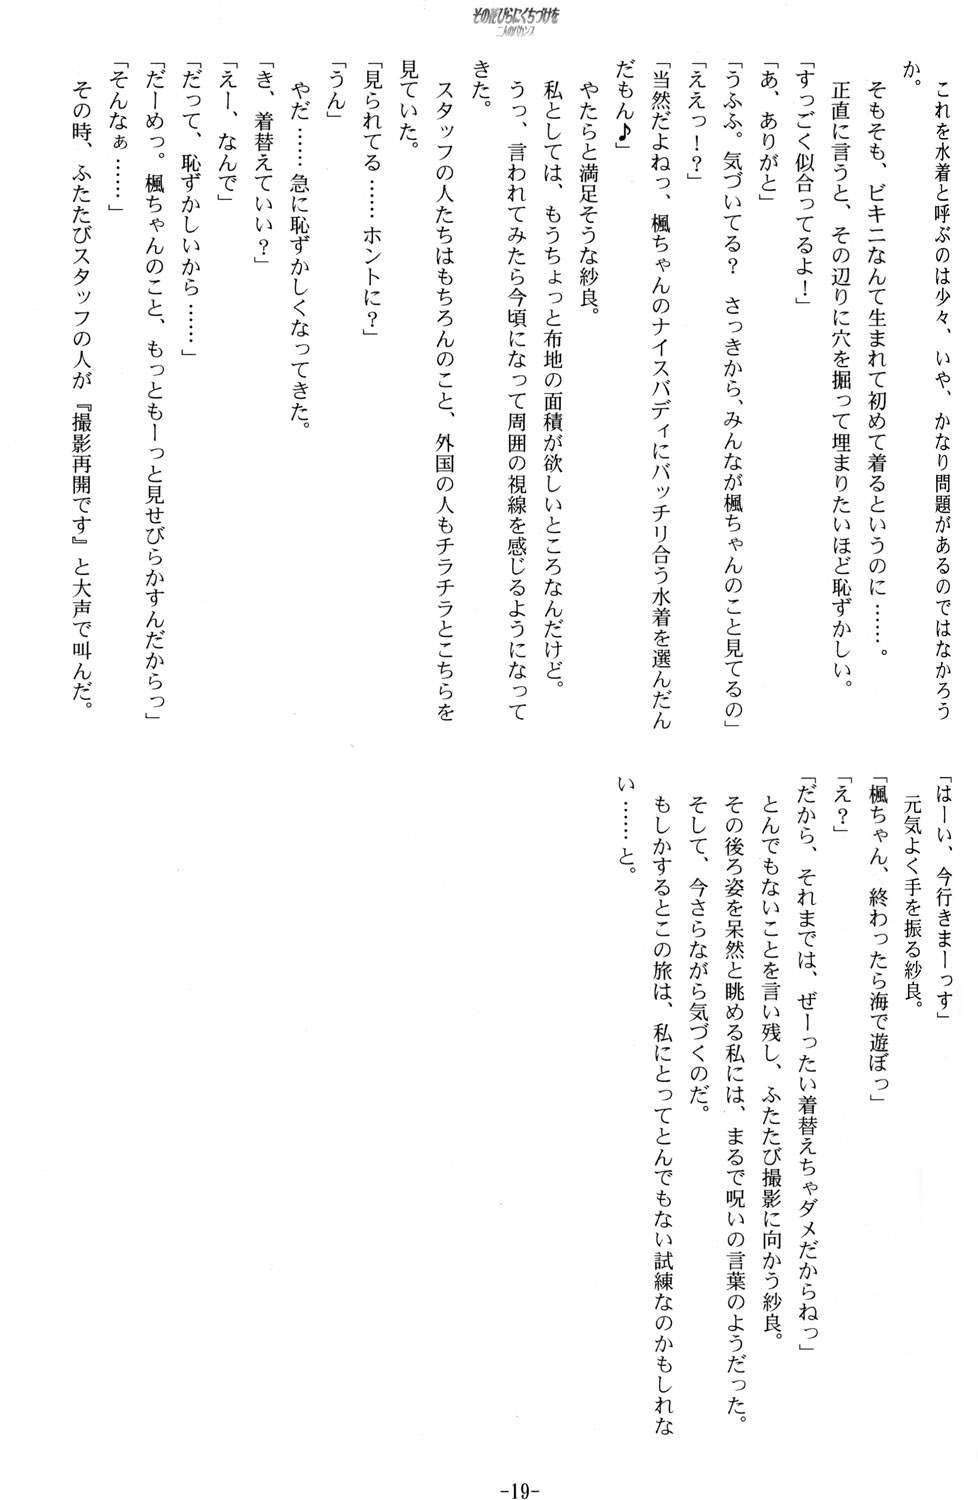 その花びらにくちづけを
二人のバカンス
これを水着と呼ぶのは少々、いや、かなり問題があるのではなかろう
か。
そもそも、ビキニなんて生まれて初めて着るというのに……。
正直に言うと、その辺りに穴を掘って埋まりたいほど恥ずかしい。
「すっごく似合ってるよ！」
「あ、ありがと」
「うふふ。気づいてる？　さっきから、みんなが楓ちゃんのこと見てるの」
「ええっ！？」
「当然だよねっ、楓ちゃんのナイスバディにバッチリ合う水着を選んだん
だもん♪」
やたらと満足そうな紗良。
私としては、もうちょっと布地の面積が欲しいところなんだけど。
うっ、言われてみたら今頃になって周囲の視線を感じるようになって
きた。
スタッフの人たちはもちろんのこと、外国の人もチラチラとこちらを
見ていた。
「見られてる……ホントに？」
「うん」
やだ……急に恥ずかしくなってきた。
「き、着替えていい？」
「えー、なんで」
「だって、恥ずかしいから……」
「だーめっ。楓ちゃんのこと、もっともーっと見せびらかすんだからっ」
「そんなぁ……」
その時、ふたたびスタッフの人が『撮影再開です』と大声で叫んだ。
「はーい、今行きまーっす」
元気よく手を振る紗良。
「楓ちゃん、終わったら海で遊ぼっ」
「え？」
「だから、それまでは、ぜーったい着替えちゃダメだからねっ」
とんでもないことを言い残し、ふたたび撮影に向かう紗良。
その後ろ姿を呆然と眺める私には、まるで呪いの言葉のようだった。
そして、今さらながら気づくのだ。
もしかするとこの旅は、私にとってとんでもない試練なのかもしれな
い……と。
-19-